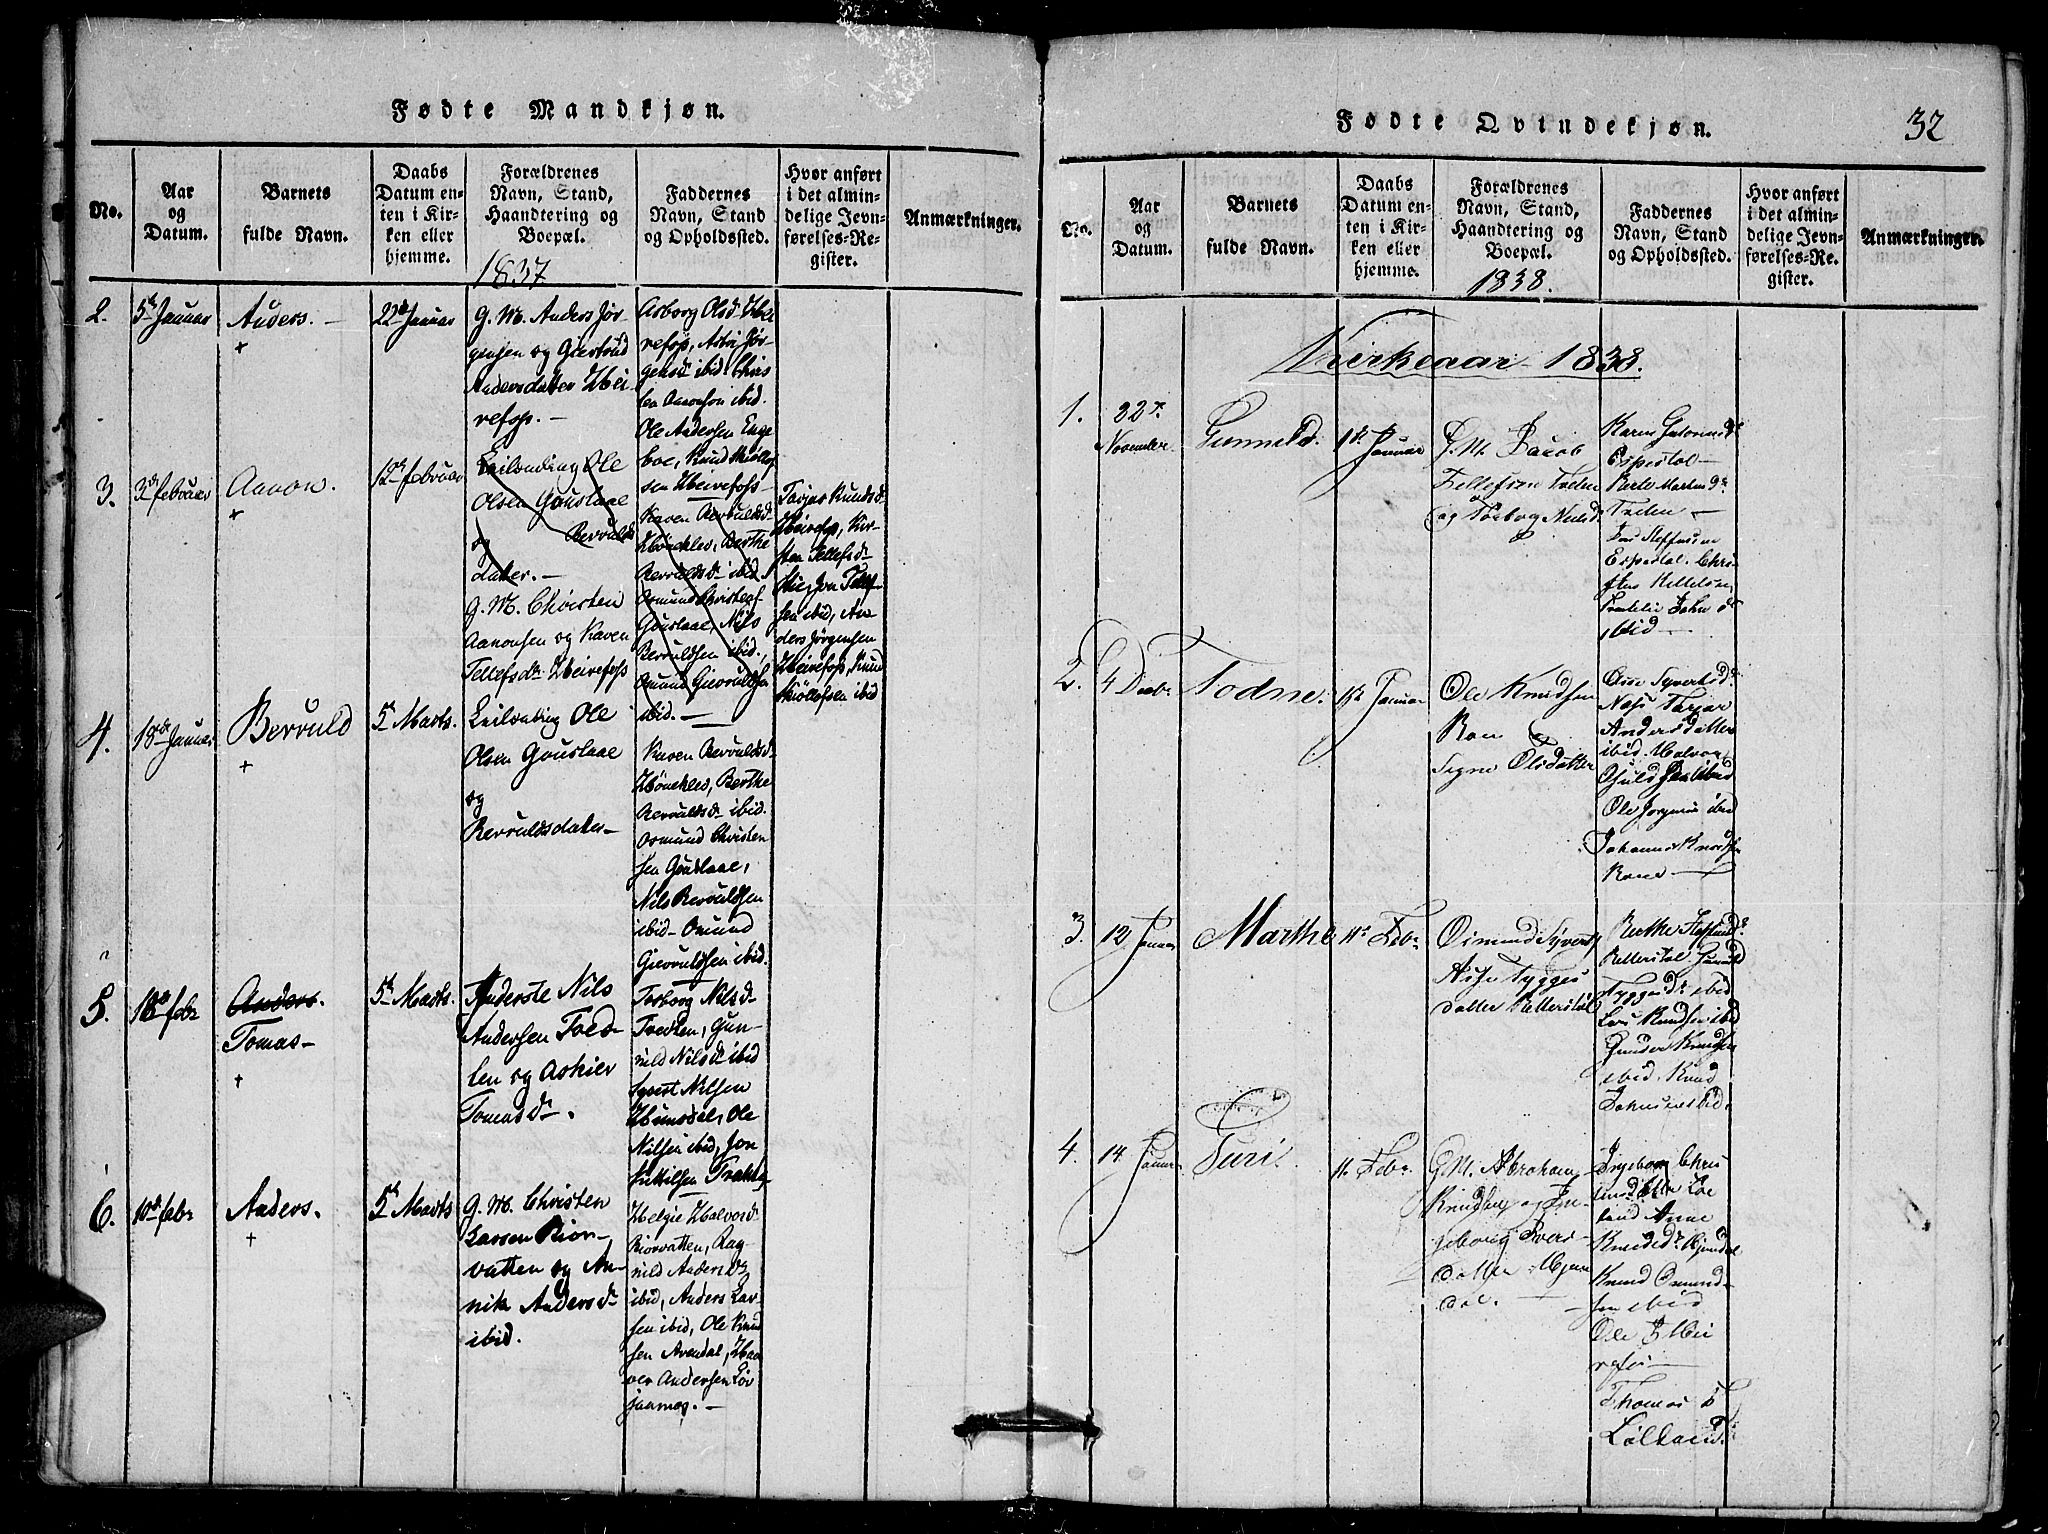 Fødte Mandkjøn.
No.
Aar
og
Datum.
Barnets
fulde Navn.
Daabs
Datum en-
ten i Kir-
ken eller
hjemme.
Forældrenes
Navn, Stand,
Haandtering og
Boepæl.
1837
Faddernes
Navn, Stand
og Opholdssted.
Hvor anført
i det almin-
delige Jevn-
førelses-Re-
gister.
Anmærkninger.
2.
5te Januar
Anders. —
+
22de Januar
G. M. Anders Jør
gensen og Giertrud
Andersdatter Hei
refoss. —
Asborg Olsd. Hei
refoss, Asbi Jør
gensd ibid. Chris
ten Aanonsen ibid.
Ole Andersen Enge
boe, Knud Kiøllef
sen Heirefoss —
3.
3de Februar
Aanon.
+
12te Februar
Leilending Ole
Olsen Gouslaae
og Bervulds
datter. —
G. M. Christen
Aanonsen og Karen
Tellefsdr. Heirefoss
Karen Bervuldsd.
Hönekleo, Berthe
Bervuldsdr ibid.
Osmund Christenf
Gouslaae, Nils
Bervuldsen ibid.,
Osmund Giervuldsen
ibid. —
Tarjer Knudsd.
Heirefoss, Kir-
sten Tellefsdr
Jon Tellef-
sen ibid, An
ders Jørgensen
Heirefoss, Knud
Kiøllefsen ibid
4.
18de Januar
Bervuld
+
5te Marts.
Leilending Ole
Olsen Gouslaae
og
Bervuldsdatter —
Karen Bervuldsd.
Hönekleo, Berthe
Bervuldsdr ibid.
Osmund Christen
sen Gouslaae,
Nils Bervuldsen
ibid — Osmund
Giervuldsen ibid.
5.
18de febr
Anders.
Tomas —
+
5te Marts.
Anderste Nils
Andersen Tved
ten og Askier
Tomasdr.
Torborg Nilsdr
Tvedten, Gun-
nild Nilsdr ibid
Syvert Nilsen
Hunsdal, Ole
Nilsen ibid, Jon
6.
10de febr
Anders.
+
5te Marts
G. M. Christen
Larsen Biør-
vatten og An-
nik Andersdr
ibid.
Helgie Halvorsdr
Biorvatten, Rag
nild Andersdr
ibid, Anders Lar
sen ibid, Ole Knud
sen Arendal, Hal
vor Andersen Löv
jaamog. —
Fødte Qvindekjøn.
32
No.
Aar
og
Datum.
Barnets
fulde Navn.
Daabs
Datum en-
ten i Kir-
ken eller
hjemme.
Forældrenes
Navn, Stand,
Haandtering og
Boepæl.
1838.
Faddernes
Navn, Stand
og Opholdssted.
Hvor anført
i det almin-
delige Jevn-
førelses-Re-
gister.
Anmærkninger.
Kirkeaar 1838.
1.
22de
November
Gunnild.
1ste Januar
G. M. Jacob
Tellefsen Treten
og Torborg Neelsd.
Karen
Espestøl —
Berte Martensdr
Treten —
Lars Steffensen
Espestøl. Chri-
sten Kittelsen
ibid —
2.
4 Decbr
Todne.
1ste Januar
Ole Knudsen
Rane
Signe Olsdatter
Asse Syvertsdr
Næss Tarjer
Andersdatter
ibid. Halvor
ibid
Ole Jorgensen ibid
Johannes Knudsen
Rane —
3.
12 Januar
Marthe
11te Febr
Osmund Syverts
Asse Tygges
datter Retterstøl
Berthe
Retterstøl Gunnild
Tyggesdr ibid
Lars Knudsen ibid
Gunder Knudsen
ibid. Knud
Johnsen ibid.
4.
14 Januar
Turi.
11. Febr
G. M. Abraham
Knudsen og In-
geborg Ivers-
datter Mjaa
dal.
Ingeborg Chris
tensdatter
land Anne
Knudsdr Mjaadal
Knud Osmund-
sen ibid
Ole I Hei
refoss —
Thomas T
Lølland.